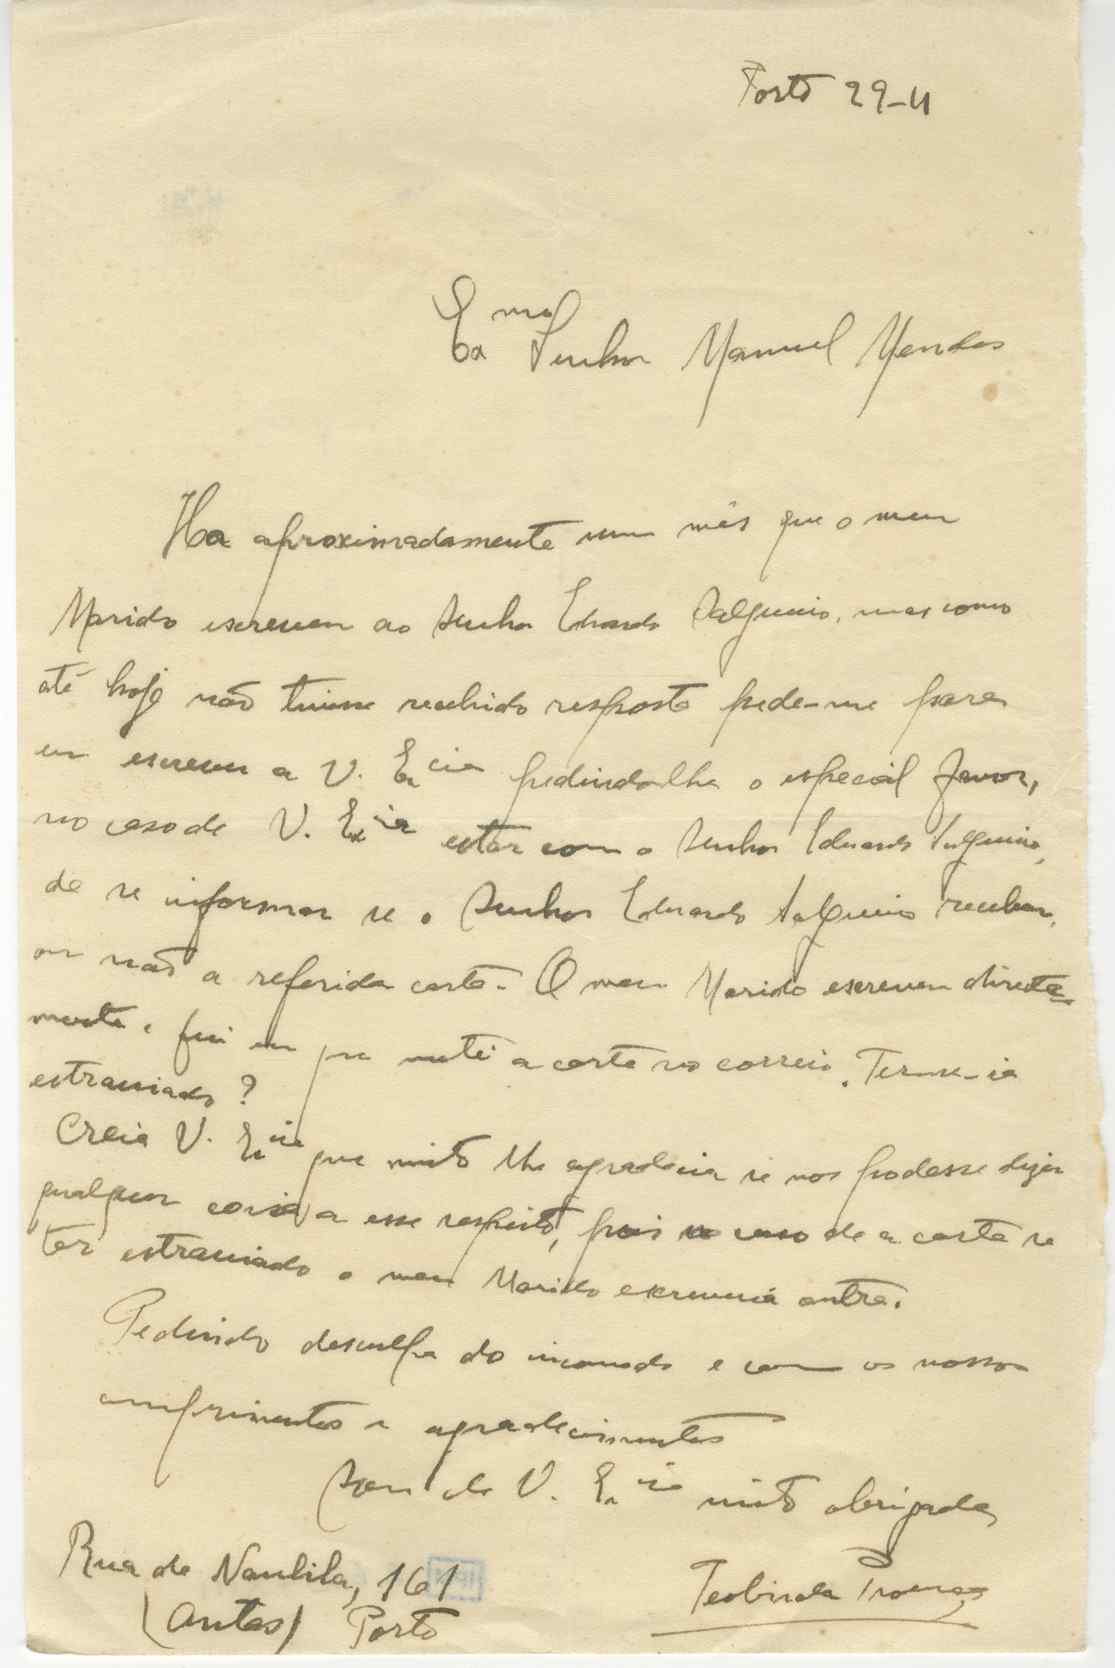 Porto 29-4
Exmo Senhor Manuel Mendes
Ha aproximadamente um mês que o meu
Marido escreveu ao Senhor Eduardo Salgueiro, mas como
até hoje não tivesse recebido resposta pede-me para
eu escrever a V. Excia pedindo-lhe o especial favor,
no caso de V. Excia estar com o Senhor Eduardo Salgueiro,
de se informar se o Senhor Eduardo Salgueiro recebeu,
ou não a referida carta. O meu Marido escreveu directa-
mente e fui eu que meti a carta no correio. Ter-se-ia
estraviado?
Creia V. Excia que muito lhe agradecia se nos podesse dizer
qualquer coisa a esse respeito, pois no caso de a carta se
ter estraviado o meu Marido escreveria outra.
Pedindo desculpa do incomodo e com os nossos
cumprimentos e agradecimentos
Sou de V. Excia muito obrigada
Rua de Naulila, 161
(Antas) Porto